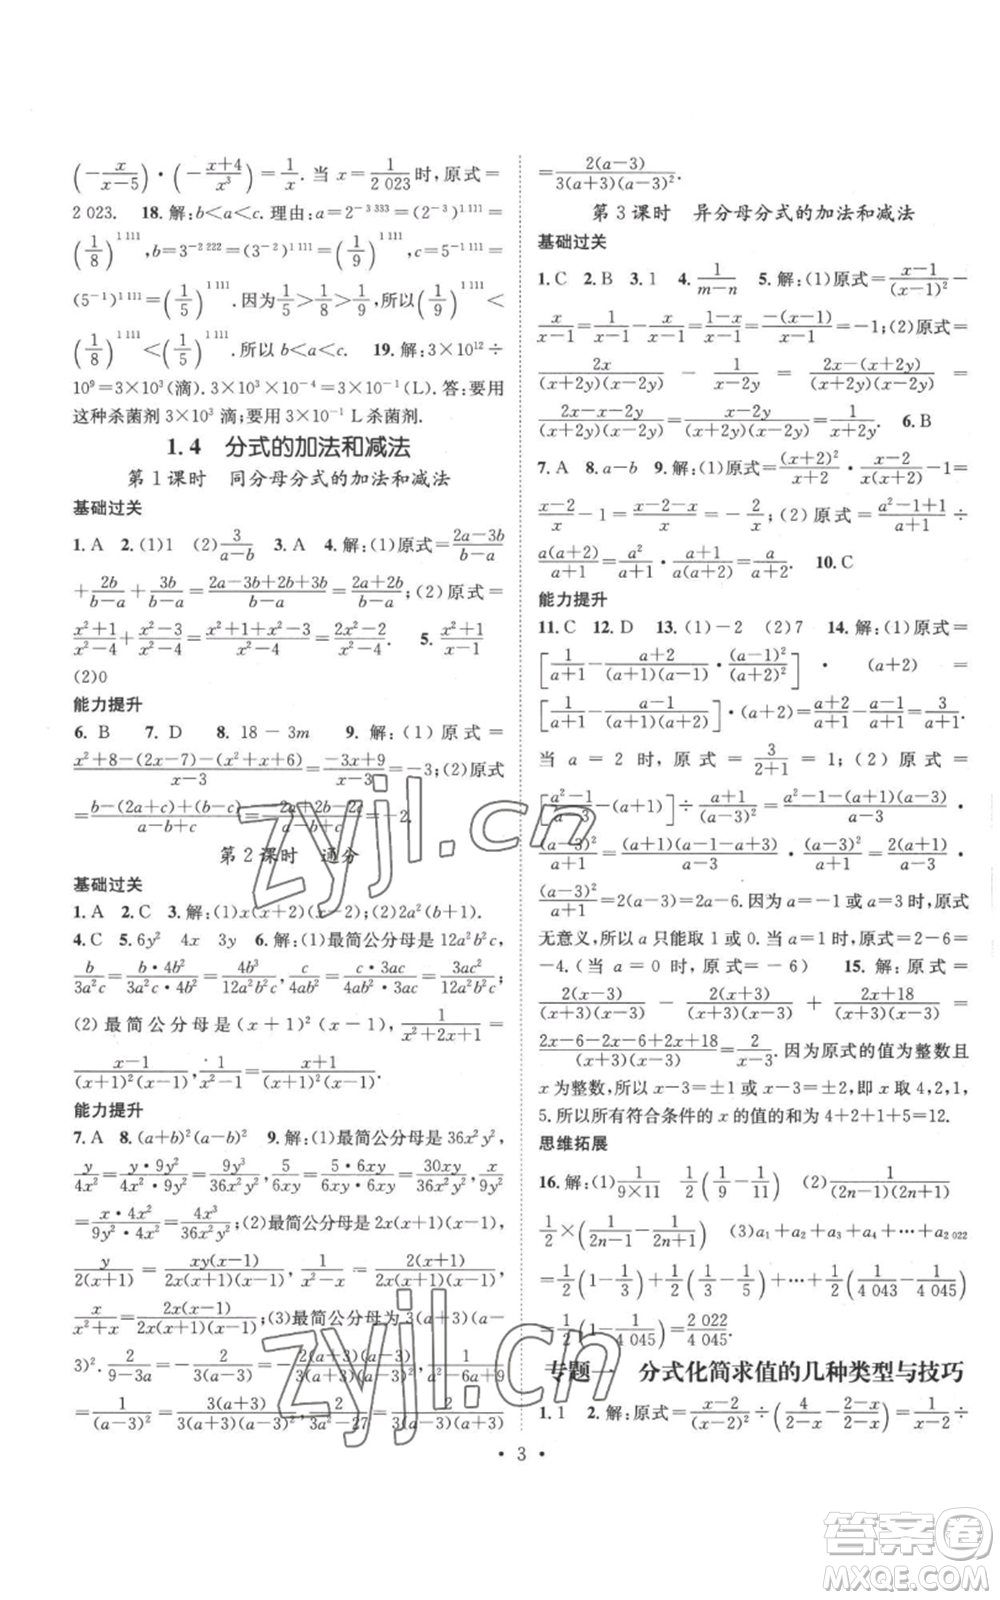 (-x/(x-5))·(-(x+4)/x³)=1/x. 当 x=1/2 023时,原式=
2 023. 18.解:b<a<c.理由:a=2^(-3 333)=(2^(-3))^(1 111)=
(1/8)^(1 111),b=3^(-2 222)=(3^(-2))^(1 111)=(1/9)^(1 111),c=5^(-1 111)=
(5^(-1))^(1 111)=(1/5)^(1 111).因为1/5>1/8>1/9,所以(1/9)^(1 111)<
(1/8)^(1 111)<(1/5)^(1 111).所以 b<a<c. 19.解:3×10¹²÷
10⁹=3×10³(滴).3×10³×10⁻⁴=3×10⁻¹(L).答:要用
这种杀菌剂 3×10³ 滴;要用 3×10⁻¹ L 杀菌剂.
1.4 分式的加法和减法
第 1 课时 同分母分式的加法和减法
基础过关
1.A 2.(1)1 (2)3/(a-b) 3.A 4.解:(1)原式=(2a-3b)/(b-a)
+2b/(b-a)+3b/(b-a)=(2a-3b+2b+3b)/(b-a)=(2a+2b)/(b-a);(2)原式=
(x²+1)/(x²-4)+(x²-3)/(x²-4)=(x²+1+x²-3)/(x²-4)=(2x²-2)/(x²-4). 5.(x²+1)/(x-1)
(2)0
能力提升
6. B 7. D 8. 18-3m 9. 解:(1)原式=
(x²+8-(2x-7)-(x²+x+6))/(x-3)=(-3x+9)/(x-3)=-3;(2)原式
=(b-(2a+c)+(b-c))/(a-b+c)=(-2a+2b-2c)/(a-b+c)=-2.
第 2 课时 通分
基础过关
1.A 2.C 3.解:(1)x(x+2)(x-2);(2)2a²(b+1).
4.C 5.6y² 4x 3y 6.解:(1)最简公分母是 12a²b²c,
b/(3a²c)=(b·4b²)/(3a²c·4b²)=4b³/(12a²b²c),c/(4ab²)=(c·3ac)/(4ab²·3ac)=3ac²/(12a²b²c);
(2)最简公分母是(x+1)²(x-1),1/(x²+2x+1)=
(x-1)/((x+1)²(x-1)),1/(x²-1)=(x+1)/((x+1)²(x-1)).
能力提升
7.A 8.(a+b)²(a-b)² 9.解:(1)最简公分母是 36x²y²,
y/(4x²)=(y·9y²)/(4x²·9y²)=9y³/(36x²y²),5/(6xy)=(5·6xy)/(6xy·6xy)=30xy/(36x²y²),x/(9y²)
=(x·4x²)/(9y²·4x²)=4x³/(36x²y²);(2)最简公分母是 2x(x+1)(x-1),
y/(2(x+1))=xy(x-1)/(2x(x+1)(x-1)),1/(x²-x)=2(x+1)/(2x(x+1)(x-1)),
(x²+x)/(x²-1)=2x(x+1)/(2x(x+1)(x-1));(3)最简公分母为 3(a+3)(a-
3)².2/(9-3a)=-2(a+3)(a-3)/(3(a+3)(a-3)²),1/(a²-6a+9)
=1/(a-3)²=3(a+3)/(3(a+3)(a-3)²),2/(3a²-27)=2/(3(a+3)(a-3))
=2(a-3)/(3(a+3)(a-3)²).
第 3 课时 异分母分式的加法和减法
基础过关
1.C 2.B 3.1 4.1/(m-n) 5.解:(1)原式=(x-1)/(x-1)²-
x/(x-1)=1/(x-1)-x/(x-1)=(1-x)/(x-1)=-(x-1)/(x-1)=-1;(2)原式=
2x/((x+2y)(x-2y))-1/(x-2y)=(2x-(x+2y))/((x+2y)(x-2y))=
(2x-x-2y)/((x+2y)(x-2y))=(x-2y)/((x+2y)(x-2y))=1/(x+2y). 6.B
7.A 8.a-b 9.解:(1)原式=(x+2)²/(x+2)·(x-2)/(x(x+2))-1=
(x-2)/x-1=(x-2-x)/x=-2/x;(2)原式=(a²-1+1)/(a+1)÷
a(a+2)/(a+1)=a²/(a+1)·(a+1)/(a(a+2))=a/(a+2). 10.C
能力提升
11.C 12.D 13.(1)-2 (2)7 14.解:(1)原式=
[1/(a+1)-(a+2)/((a+1)(a-1))·(a-1)²/(a+2)]·(a+2)=
[1/(a+1)-(a-1)/((a+1)(a+2))]·(a+2)=(a+2)/(a+1)-(a-1)/(a+1)=3/(a+1).
当 a=2 时,原式=3/(2+1)=1;(2)原式=
当 a = 0 时,原式 = -6) 15. 解:原式 =
2(x-3)/((x+3)(x-3))-2(x+3)/((x+3)(x-3))+(2x+18)/((x+3)(x-3))=
(2x-6-2x-6+2x+18)/((x+3)(x-3))=2/(x-3). 因为原式的值为整数且
x 为整数,所以 x-3=±1 或 x-3=±2,即 x 取 4,2,1,
5.所以所有符合条件的 x 的值的和为 4+2+1+5=12.
思维拓展
16.解:(1)1/(9×11) 1/2(1/9-1/11) (2)1/((2n-1)(2n+1))
1/2×(1/(2n-1)-1/(2n+1)) (3)a₁+a₂+a₃+a₄+⋯+a₂₀₂₂
=1/2(1-1/3)+1/2(1/3-1/5)+⋯+1/2(1/4 043-1/4 045)
=1/2(1-1/4 045)=2 022/4 045.
专题一 分式化简求值的几种类型与技巧
1.1 2.解:原式=(x-2)/(x-2)²÷(4/(2-x)-(2-x)/(2-x))=1/(x-2)÷
• 3 •
zyjl.cn
zyjl.cn
答案圈
MXQE.COM